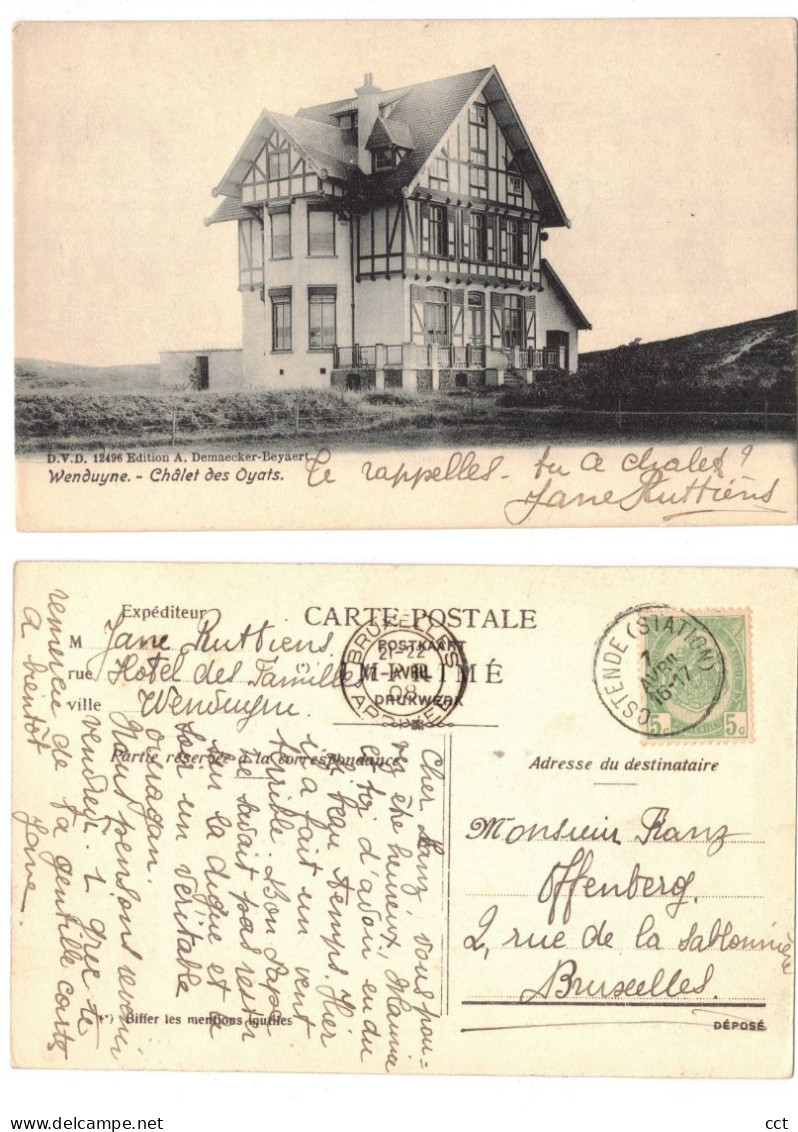 D.V.D. 12496 Edition A. Demaecker-Beyaert
Wenduyne. - Châlet des Oyats.
Te rappelles-tu a chalet?
Jane Ruttiens
Expéditeur
M Jane Ruttiens
rue Hotel des Familles
ville Wenduyne
CARTE POSTALE
POSTKAART
(*) IMPRIMÉ
DRUKWERK
BRUXELLES
21-22
AVRIL
08
OSTENDE (STATION)
7
AVRIL
16-17
5c 5c
Partie réservée à la correspondance
Adresse du destinataire
Cher Franz, vous pou-
vez être heureux, Maurice
et toi d'avoir eu du
beau temps. Hier
il a fait un vent
terrible. Bon Papa
ne savait pas rester
sur la digue et le
soir un véritable
ouragan.
Nous pensons revenir
vendredi. Je te
remercie de ta gentille carte
A bientôt
Jane
Monsieur Franz
Offenberg,
2, rue de la Sablonnière
Bruxelles.
(*) Biffer les mentions inutiles
DÉPOSÉ
cct